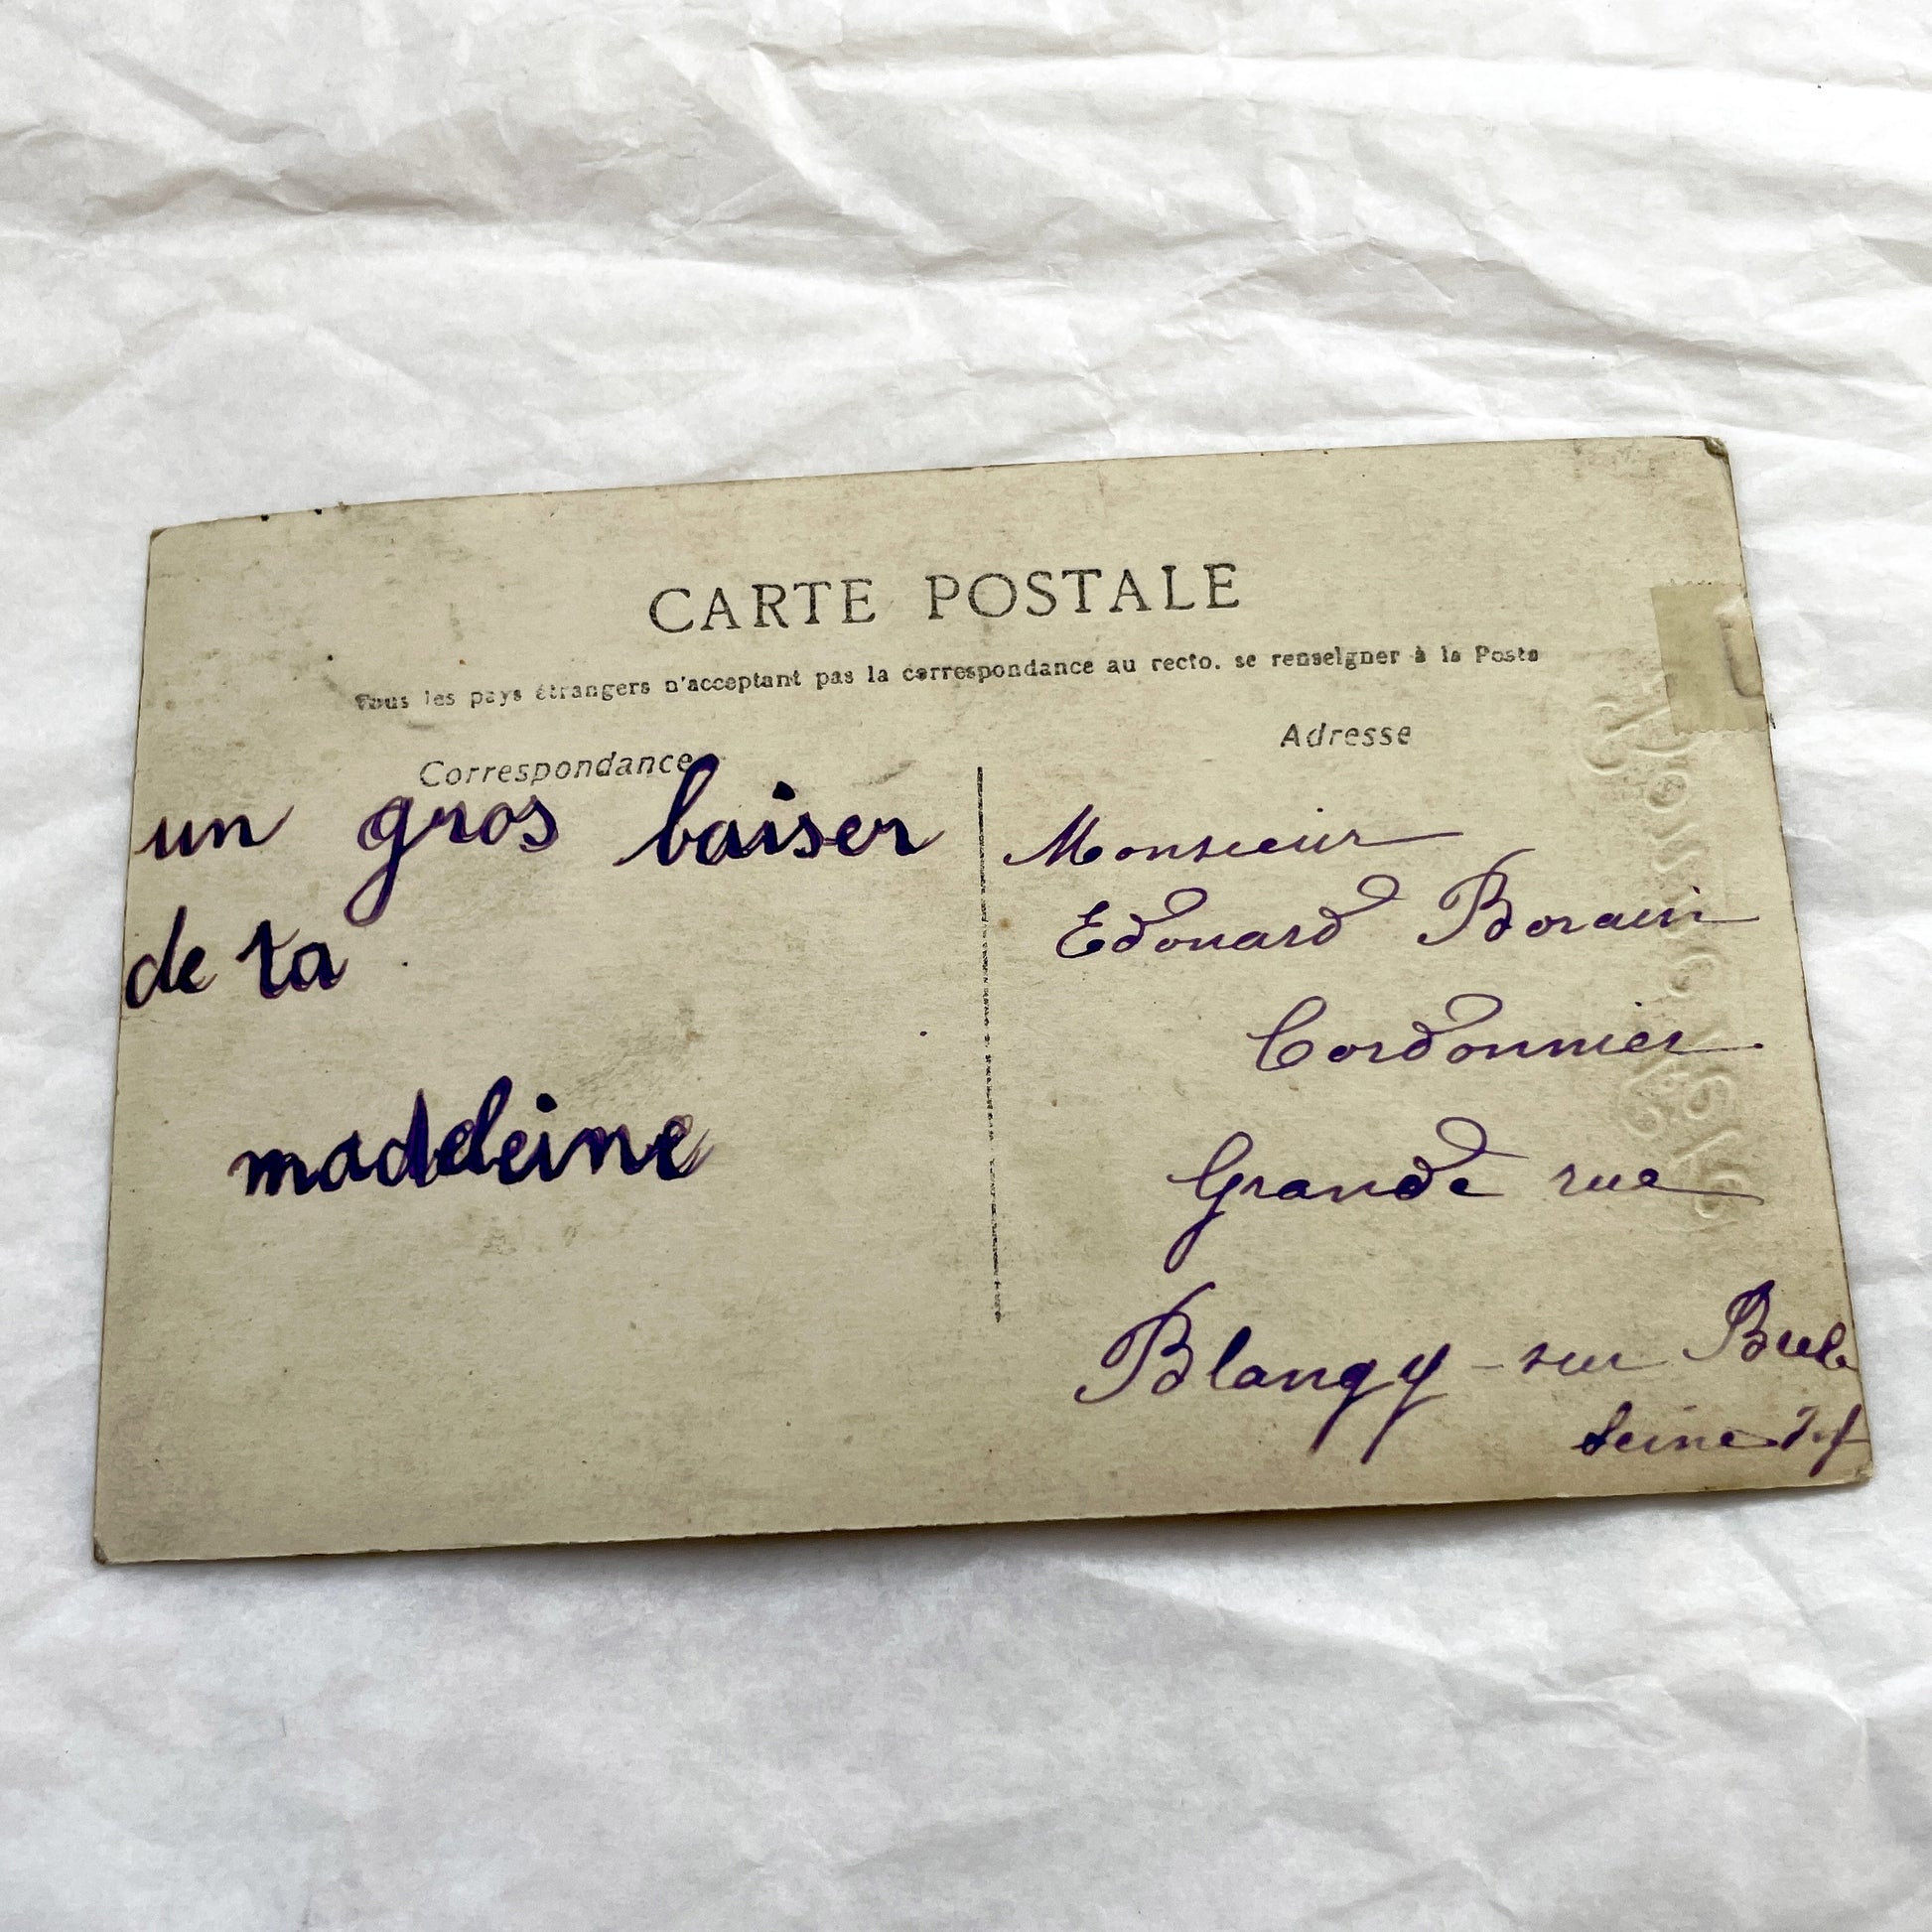 CARTE POSTALE
Tous les pays étrangers n'acceptant pas la correspondance au recto, se renseigner à la Poste
Correspondance
Adresse
un gros baiser
de ta
madeleine
Monsieur
Edouard Borain
Cordonnier
Grande rue
Blangy-sur Brele
Seine Inf